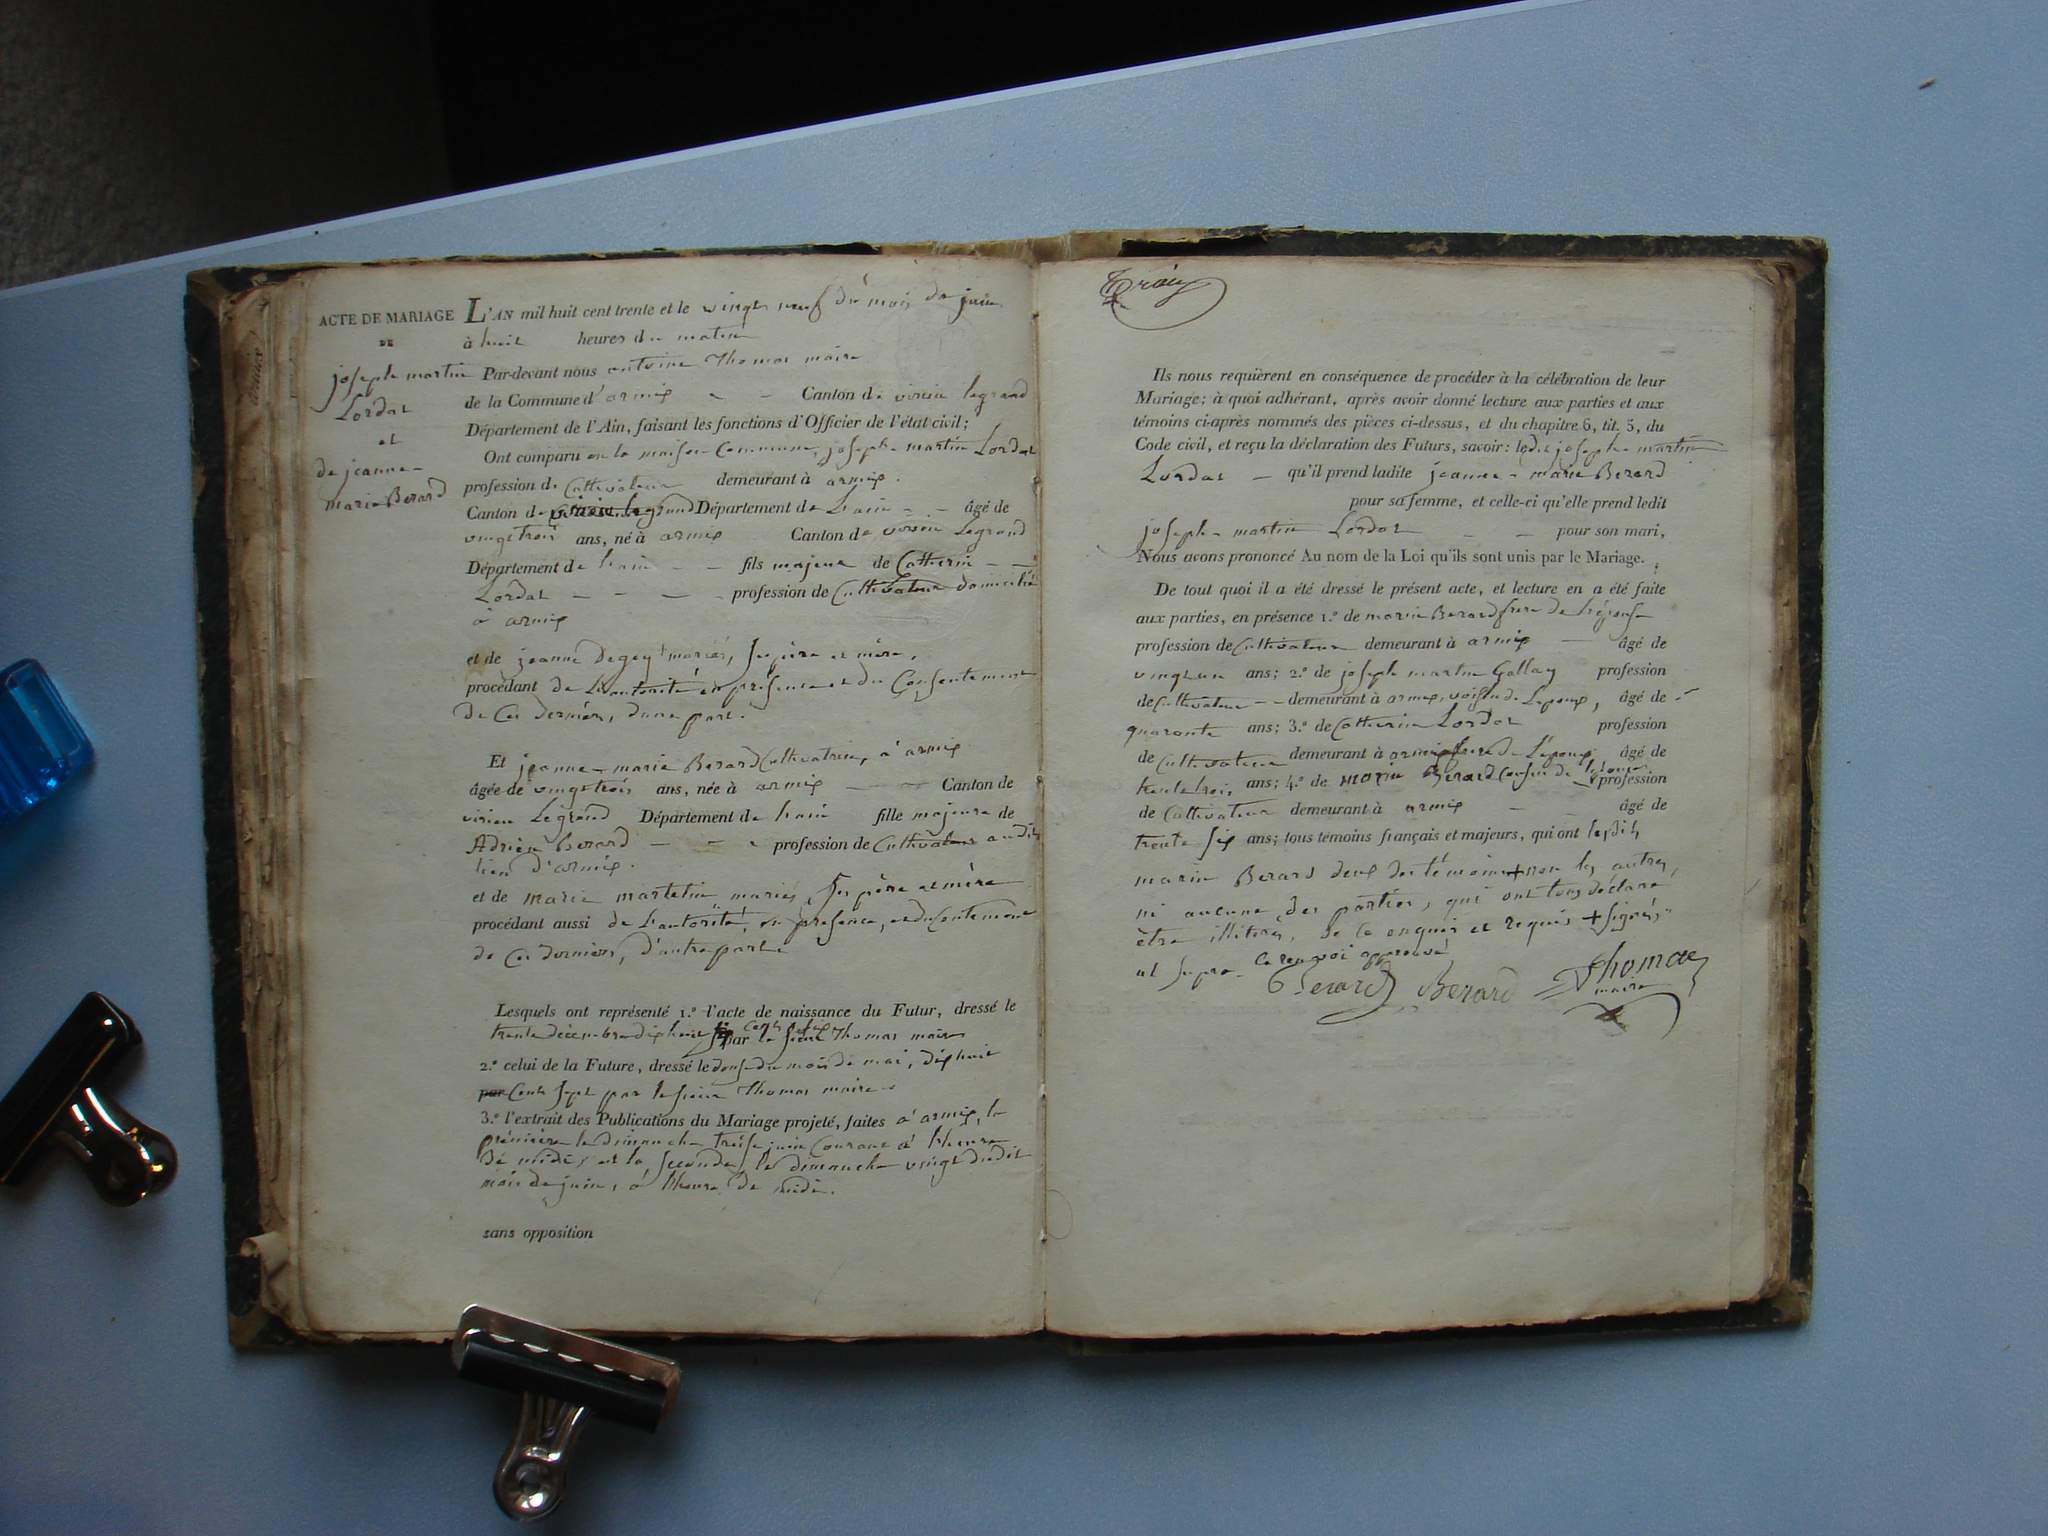 ACTE DE MARIAGE
DE
joseph martin
Lordat
et
de jeanne-
marie Berard
L'AN mil huit cent trente et le vingt neuf du mois de juin
à huit heures du matin
Par-devant nous antoine Thomas maire
de la Commune d'armix - - Canton de virieu legrand
Département de l'Ain, faisant les fonctions d'Officier de l'état civil;
Ont comparu en la maison Commune, joseph martin Lordat
profession de Cultivateur demeurant à armix.
Canton de virieu legrand Département de Lain - - âgé de
vingttrois ans, né à armix Canton de virieu Legrand
Département de Lain - - fils majeur de Catherin - -
Lordat - - - - profession de Cultivateur domicilié
à armix
et de jeanne mariés, ses père et mère,
procédant de Lautorité en présence et du Consentement
de Ces derniers, d'une part.
Et jeanne-marie Berard Cultivatrice, à armix
âgée de vingttrois ans, née à armix - - Canton de
virieu Legrand Département de Lain fille majeure de
Adrien Berard - - - profession de Cultivateur audit
lieu d'armix.
et de marie martelin mariés, ses père et mère
procédant aussi de Lautorité, en présence, et du Contement
de Ces derniers, d'autre part
Lesquels ont représenté 1.º l'acte de naissance du Futur, dressé le
trente décembre dix huit Cent six par le sieur Thomas maire
2.º celui de la Future, dressé le douse du mois de mai, dix huit
par Cent sept par le sieur Thomas maire
3.º l'extrait des Publications du Mariage projeté, faites à armix, la
première le dimanche treise juin Courant à lheure
de midi, et la seconde, le dimanche vingt dudit
mois de juin, à lheure de midi.
sans opposition
Ils nous requièrent en conséquence de procéder à la célébration de leur
Mariage; à quoi adhérant, après avoir donné lecture aux parties et aux
témoins ci-après nommés des pièces ci-dessus, et du chapitre 6, tit. 5, du
Code civil, et reçu la déclaration des Futurs, savoir: ledit joseph martin
Lordat - qu'il prend ladite jeanne-marie Berard
pour sa femme, et celle-ci qu'elle prend ledit
joseph martin Lordat - - pour son mari,
Nous avons prononcé Au nom de la Loi qu'ils sont unis par le Mariage.
De tout quoi il a été dressé le présent acte, et lecture en a été faite
aux parties, en présence 1.º de marin Berard frere de Lépouse
profession de Cultivateur demeurant à armix - âgé de
vingt un ans; 2.º de joseph martin Gallay profession
de Cultivateur - demeurant à armix, voisin de Lepoux, âgé de
quarante ans; 3.º de Catherin Lordat profession
de Cultivateur demeurant à armix frere de L'epoux âgé de
trente trois ans; 4.º de marin Berard Cousin de profession
de Cultivateur demeurant à armix - âgé de
trente six ans; tous témoins français et majeurs, qui ont lesdits
marin Berard deux des témoins + non les autres,
ni aucune des parties, qui ont tous déclaré
être illitérés, de Ce enquis et requis + signés
ut supra Ce renvoi approuvé
Berard Berard Thomas
maire